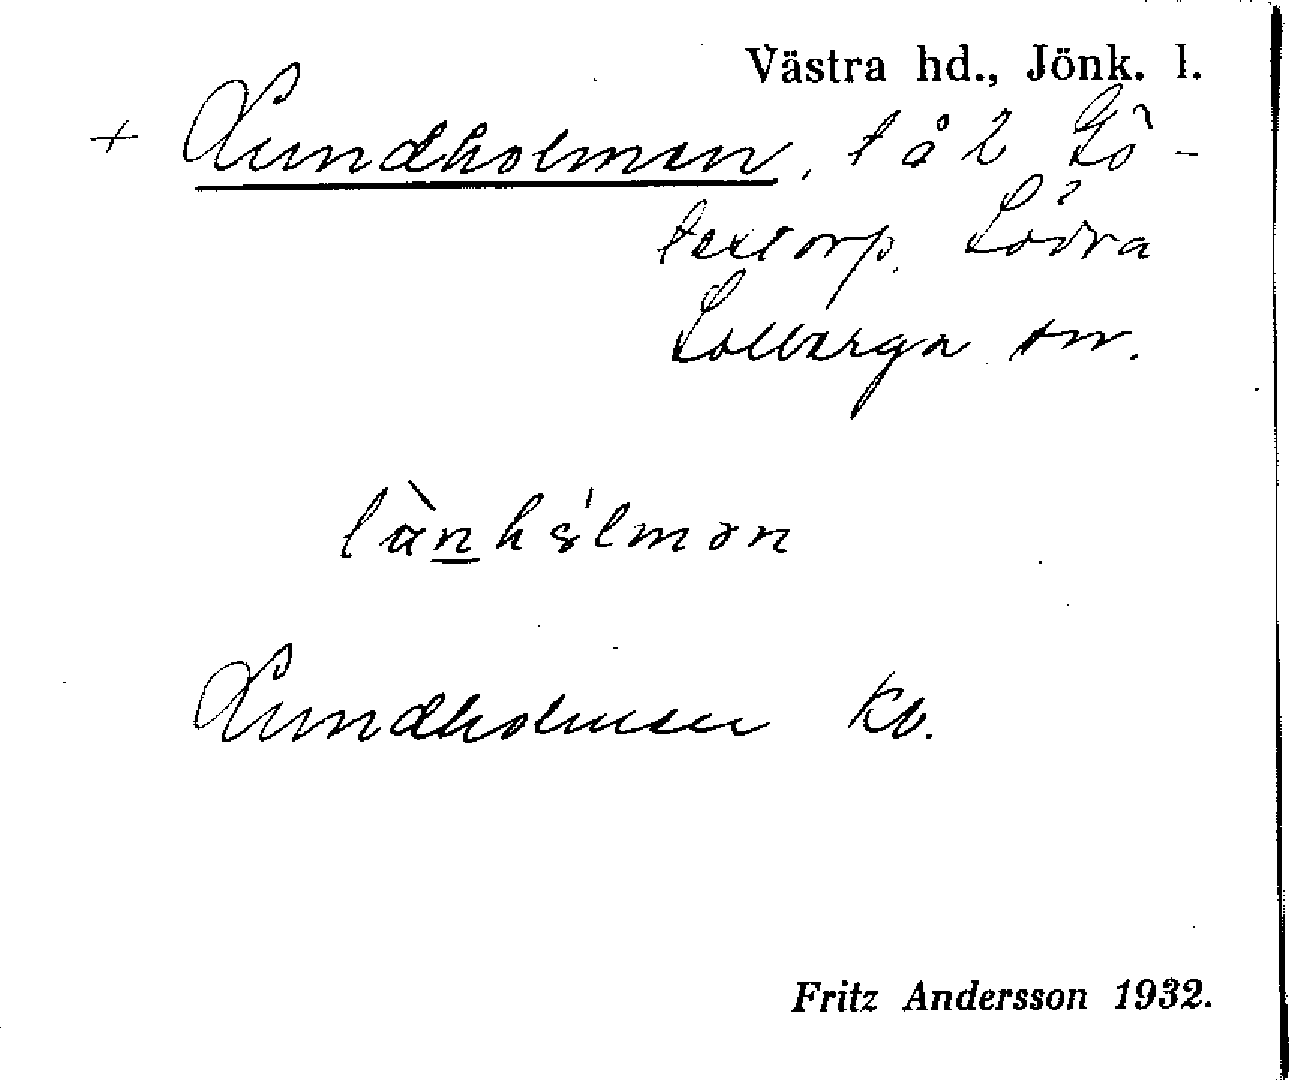 Västra hd., Jönk. l.
+ Lundholmen, t å l Gö-
testorp, Södra
Solberga sn.
lànhólmən
Lundholmen kb.
Fritz Andersson 1932.